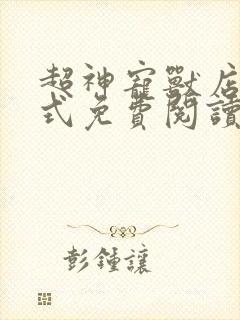 超神寵獸店
式免費閱讀
彭鍾讓